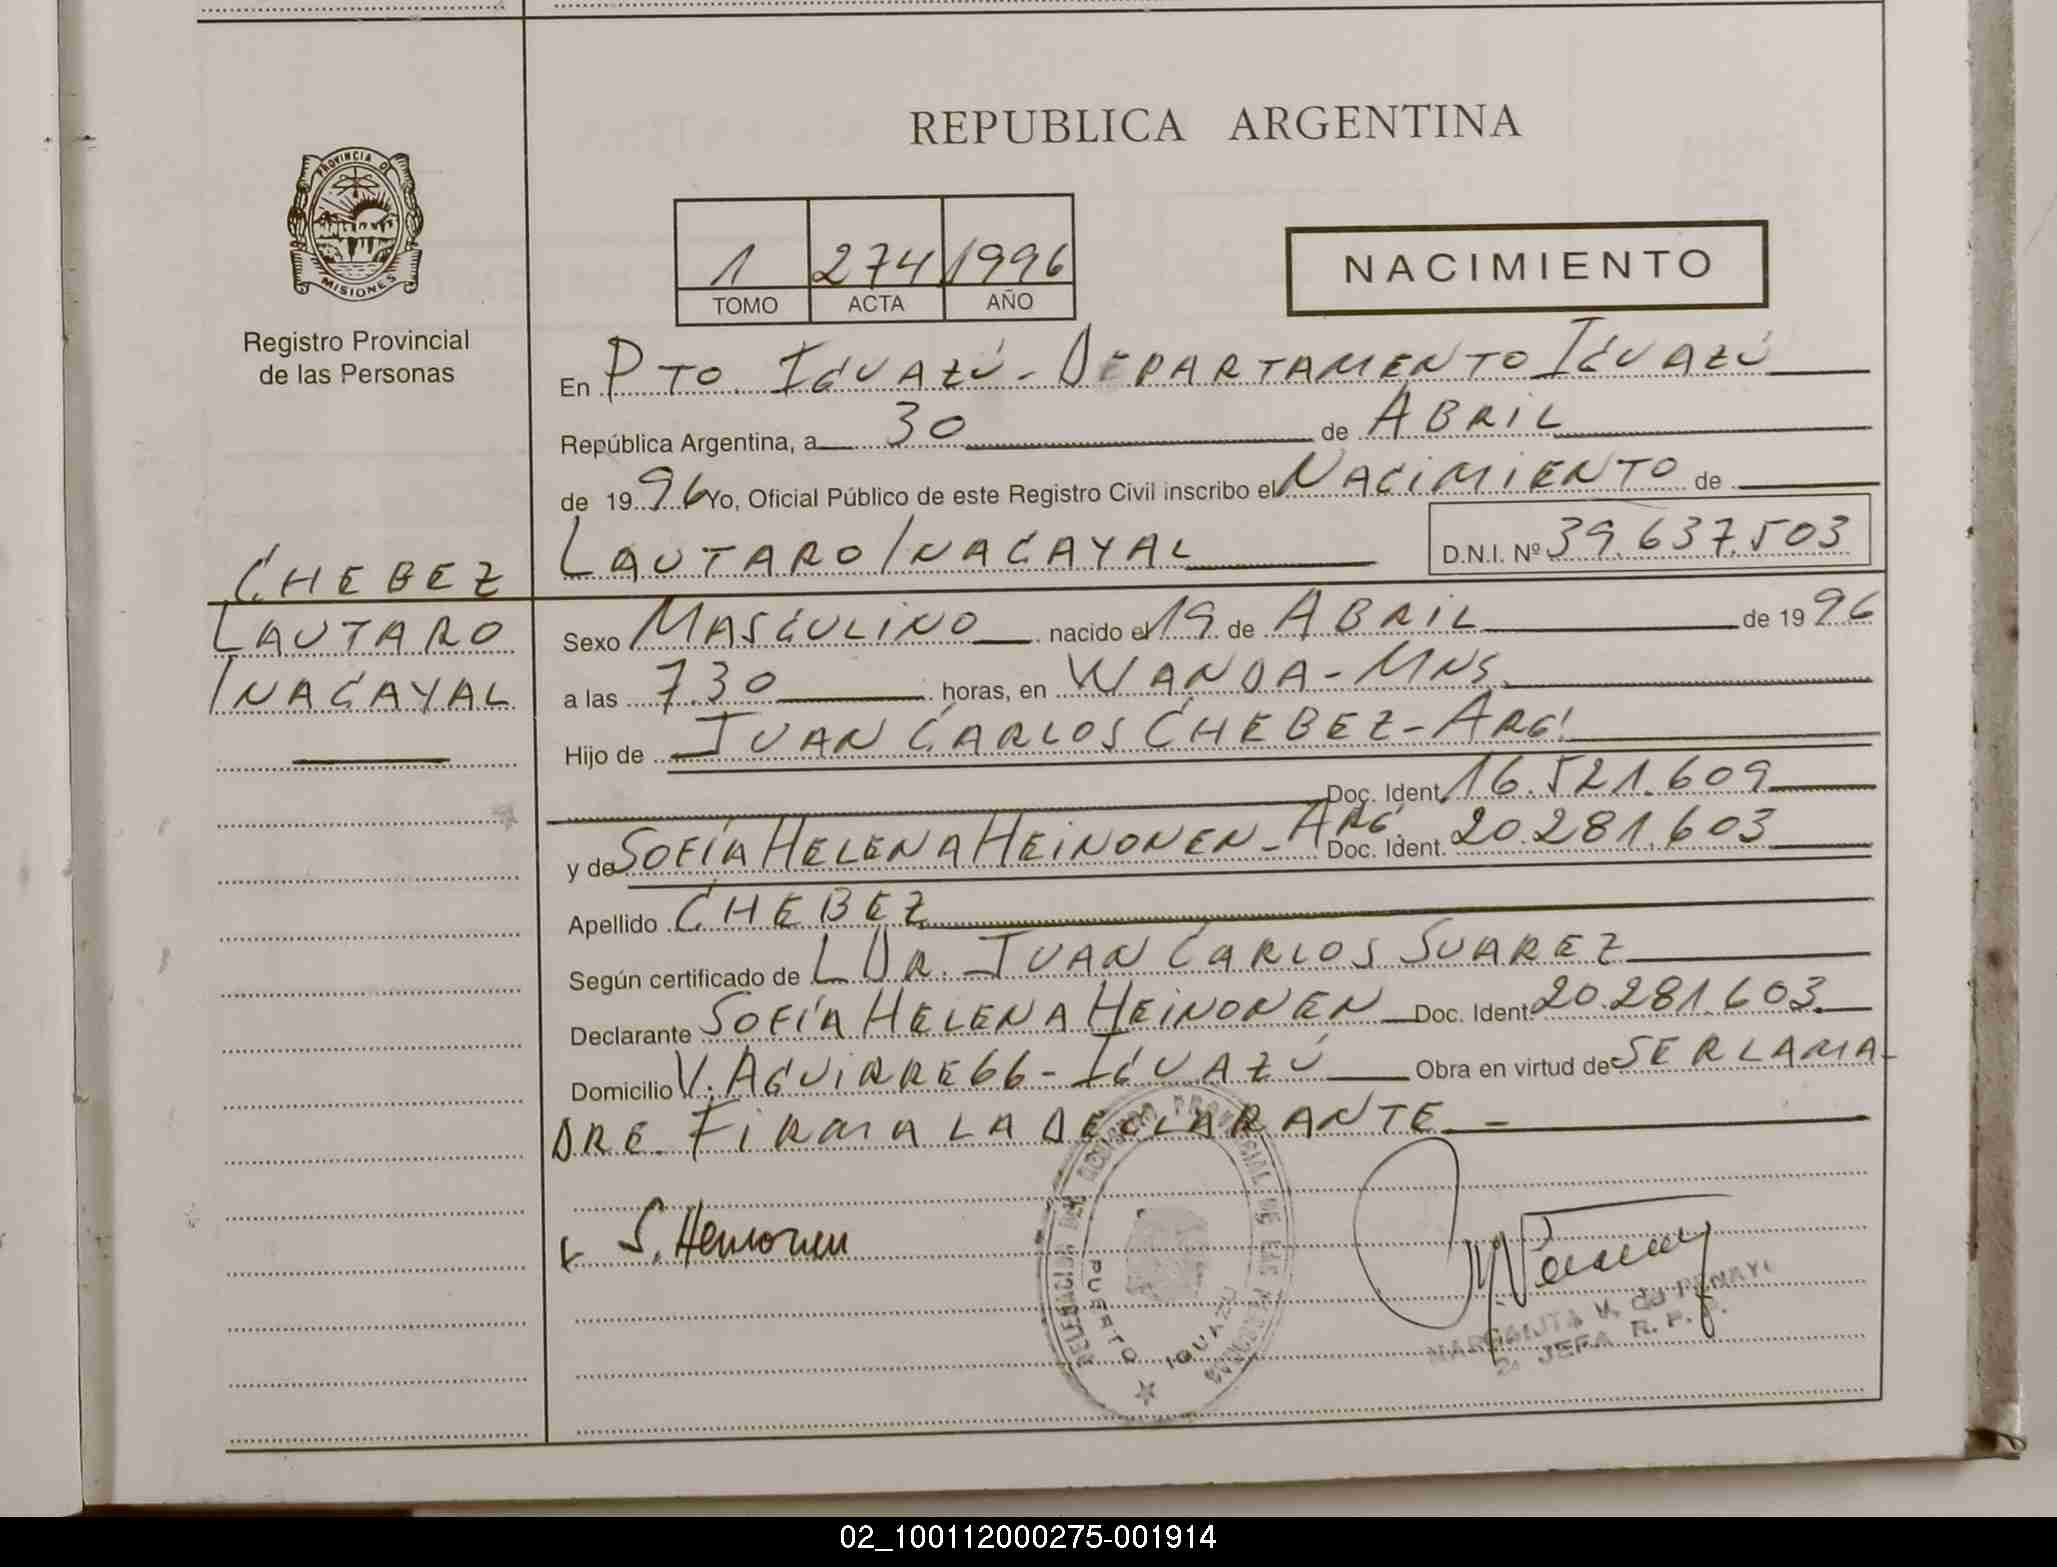 REPUBLICA ARGENTINA
PROVINCIA DE
MISIONES
Registro Provincial
de las Personas
1 274 1996
TOMO ACTA AÑO
NACIMIENTO
En PTO. IGUAZÚ - DEPARTAMENTO IGUAZÚ
República Argentina, a 30 de ABRIL
de 1996 Yo, Oficial Público de este Registro Civil inscribo el NACIMIENTO de
LAUTARO INACAYAL D.N.I. Nº 39.637.503
CHEBEZ
LAUTARO
INACAYAL
Sexo MASCULINO nacido el 19 de ABRIL de 1996
a las 7.30 horas, en WANDA - MNS.
Hijo de JUAN CARLOS CHEBEZ - ARG.
Doc. Ident. 16.521.609
y de SOFÍA HELENA HEINONEN - ARG. Doc. Ident. 20.281.603
Apellido CHEBEZ
Según certificado de L DR. JUAN CARLOS SUAREZ
Declarante SOFÍA HELENA HEINONEN Doc. Ident. 20.281.603.
Domicilio V. AGUIRRE 66 - IGUAZÚ Obra en virtud de SER LA MA-
DRE. FIRMA LA DECLARANTE. -
S. Heinonen
DELEGACION DEL REGISTRO PROVINCIAL DE LAS PERSONAS
PUERTO IGUAZU
MARGARITA V. de PENAYO
2ª JEFA R. P. P.
02_100112000275-001914